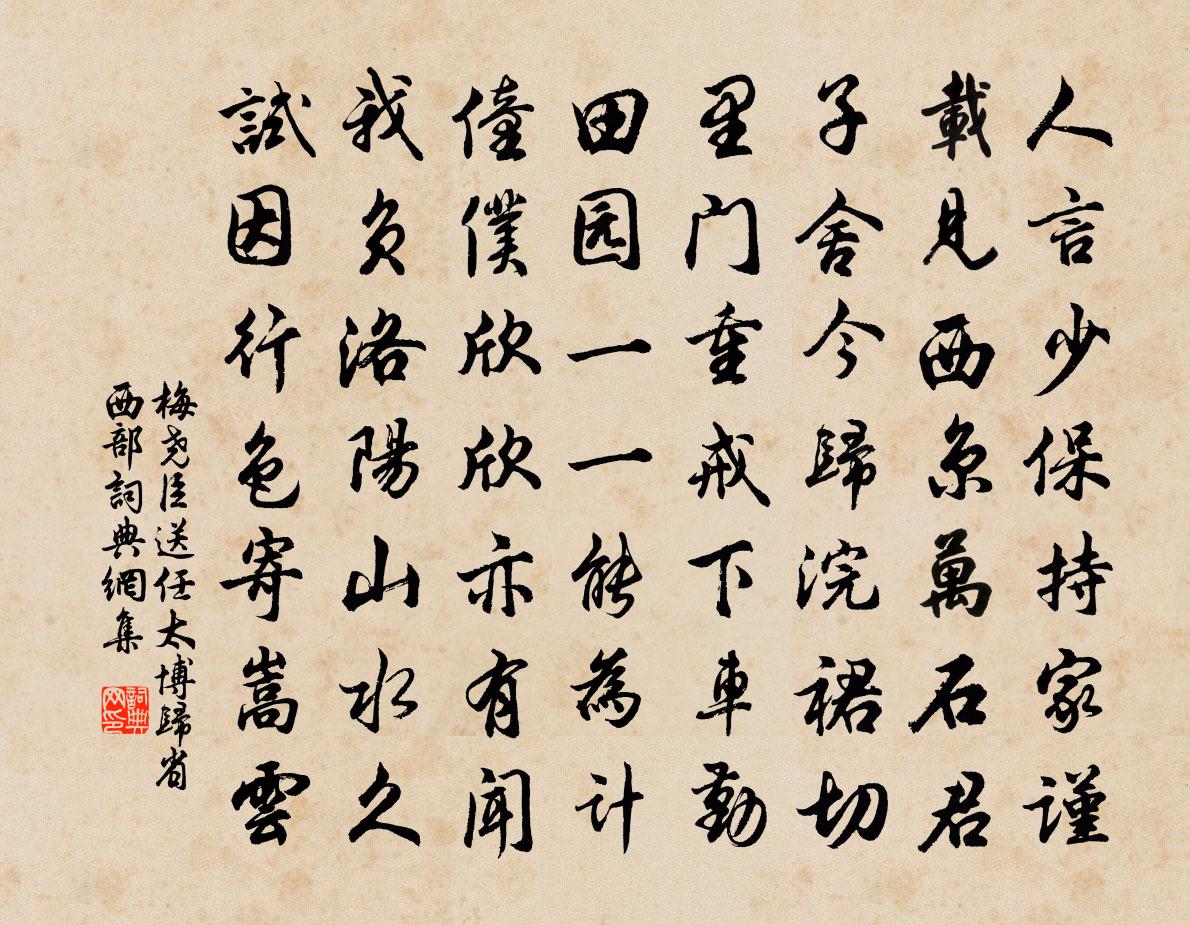 人言少保持家謹
載見西京萬石君
子舍今歸浣裙切
里门重戒下車勤
田园一一能為计
僮僕欣欣亦有闻
我負洛陽山水久
試因行色寄嵩雲
梅尧臣送任太博歸省
西部詞典網集
詞典网印